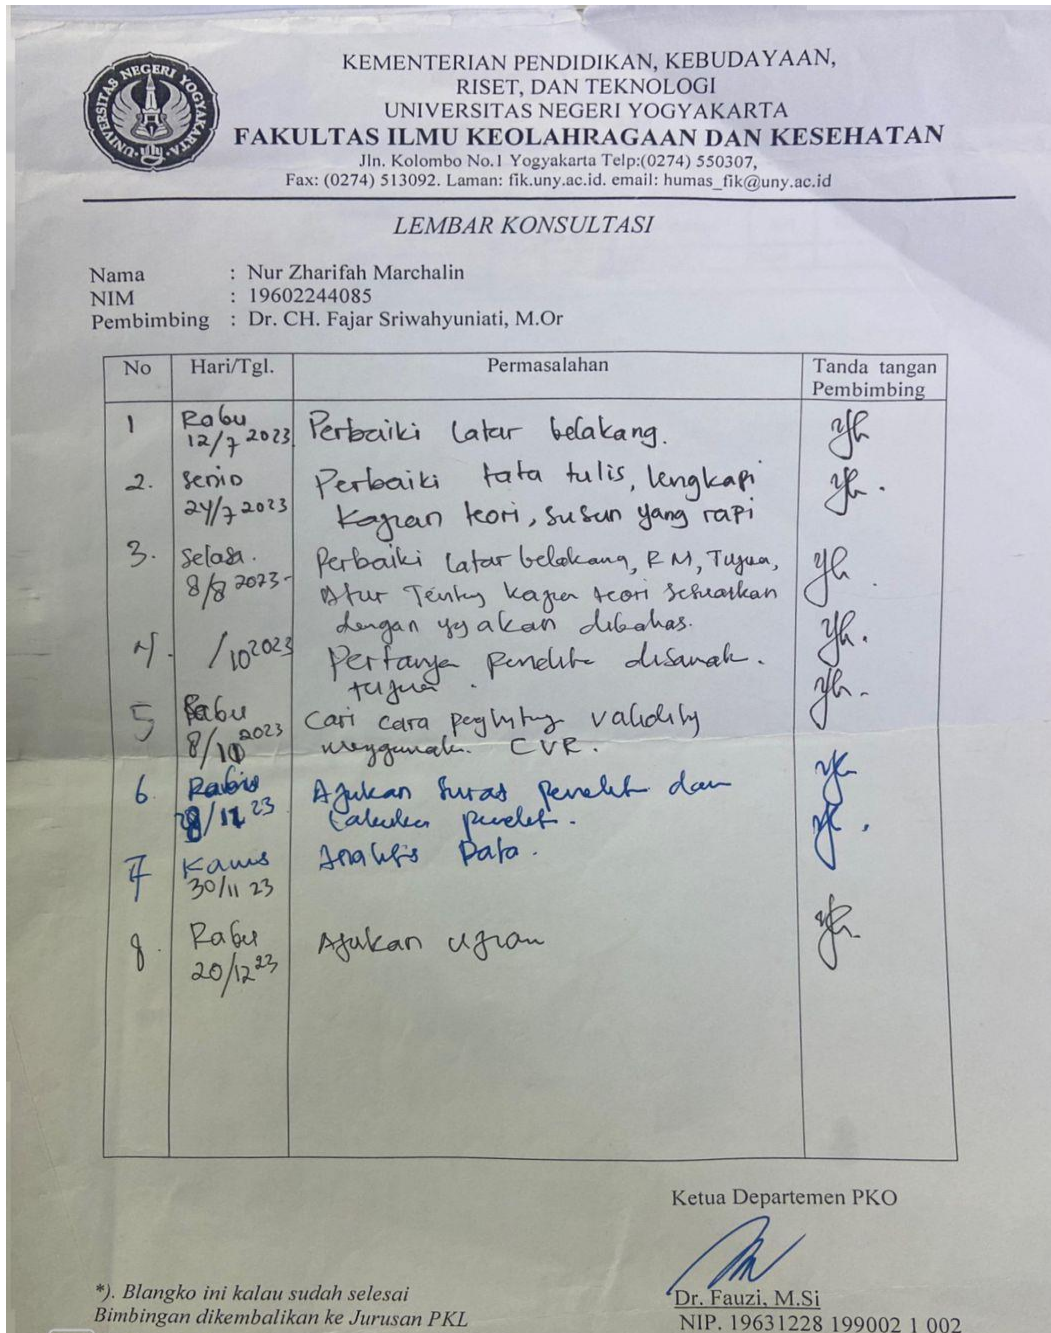 UNIVERSITAS NEGERI YOGYAKARTA
KEMENTERIAN PENDIDIKAN, KEBUDAYAAN,
RISET, DAN TEKNOLOGI
UNIVERSITAS NEGERI YOGYAKARTA
FAKULTAS ILMU KEOLAHRAGAAN DAN KESEHATAN
Jln. Kolombo No.1 Yogyakarta Telp:(0274) 550307,
Fax: (0274) 513092. Laman: fik.uny.ac.id. email: humas_fik@uny.ac.id
LEMBAR KONSULTASI
Nama : Nur Zharifah Marchalin
NIM : 19602244085
Pembimbing : Dr. CH. Fajar Sriwahyuniati, M.Or
No Hari/Tgl. Permasalahan Tanda tangan
Pembimbing
1 Rabu Perbaiki latar belakang.
12/7 2023
2. Senin Perbaiki tata tulis, lengkapi
24/7 2023 kajian teori, susun yang rapi
3. Selasa. Perbaiki latar belakang, RM, Tujuan,
8/8 2023 Atur kajian teori sesuaikan
dengan yg akan dibahas.
4. /10 2023
5 Rabu Cari cara validity
8/ 2023 CVR.
6. Ajukan surat dan
23
7 Kamis Analisis Data.
30/11 23
8. Rabu Ajukan ujian
20/12 23
Ketua Departemen PKO
Dr. Fauzi, M.Si
NIP. 19631228 199002 1 002
*). Blangko ini kalau sudah selesai
Bimbingan dikembalikan ke Jurusan PKL